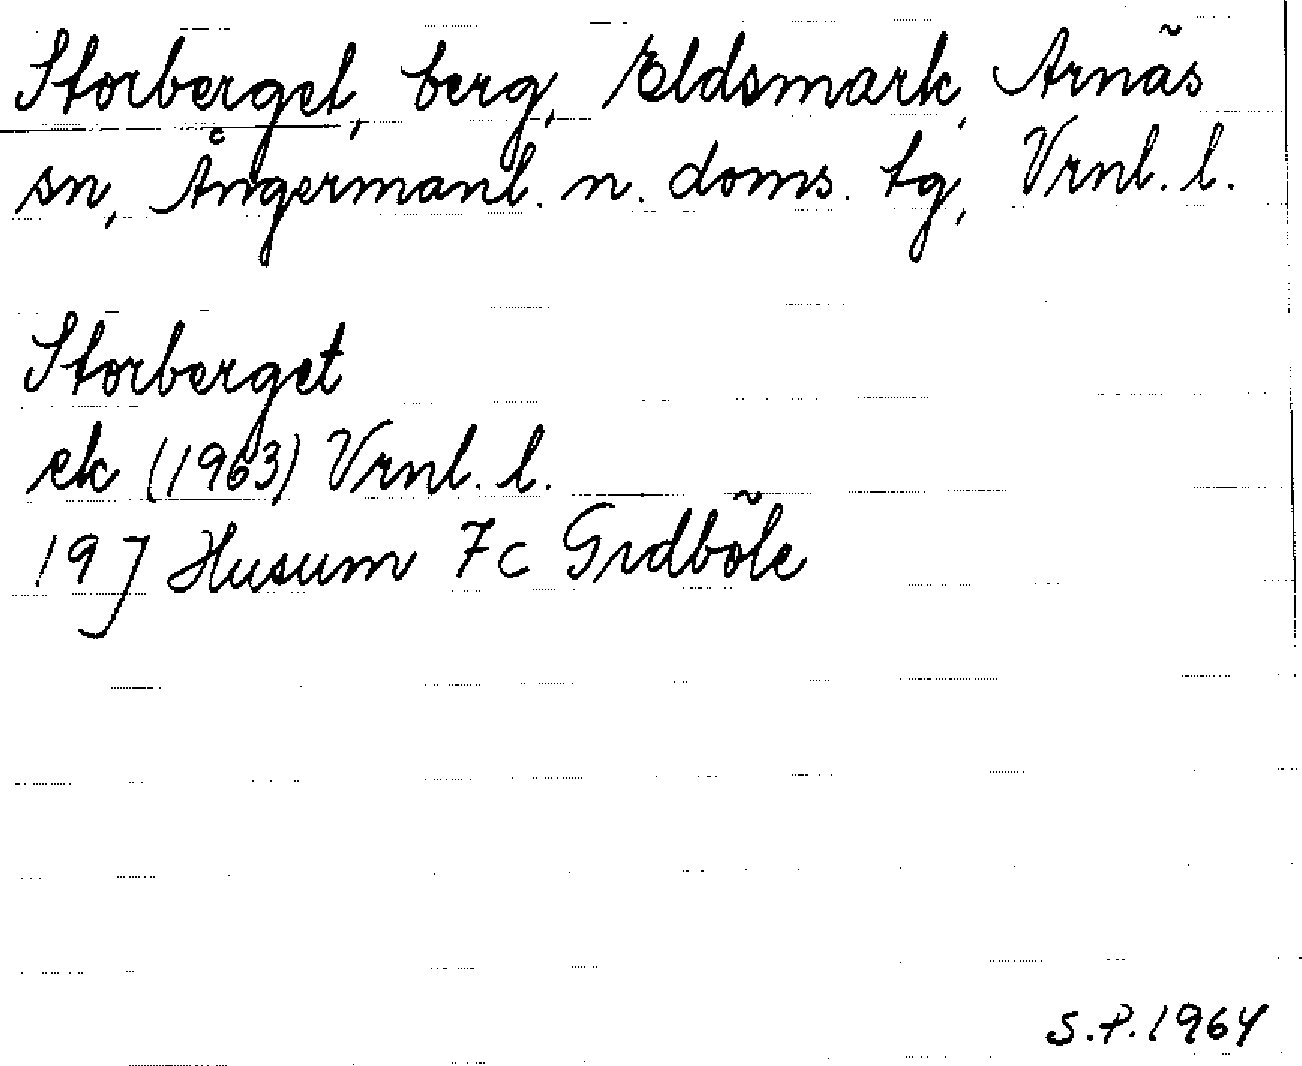 Storberget, berg, Eldsmark, Arnäs
sn, Ångermanl. n. doms. tg, Vrnl. l.
Storberget
ek (1963) Vrnl. l.
19J Husum 7c Gidböle
S.P. 1964